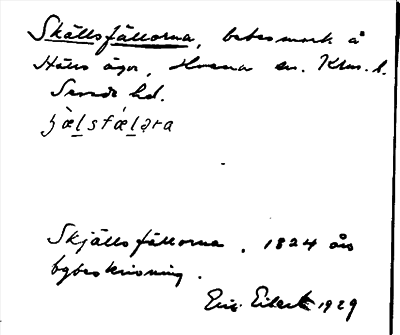 Skällsfällorna, betesmark å
Hults ägor, Hvena sn. Klm. l.
Sevede hd.
Skjällsfällorna, 1824 års
bybeskrivning.
Eric Eilert 1929